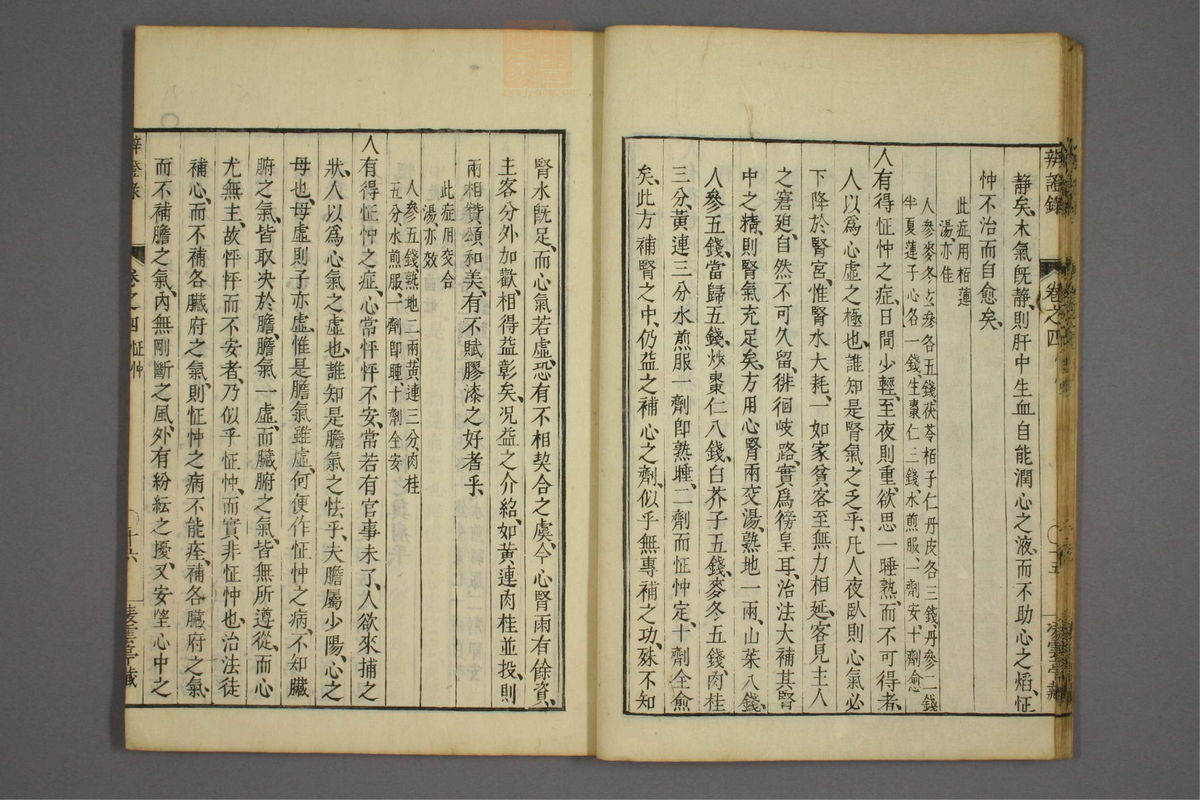 辨證錄 卷之四 十五
靜矣、木氣旣靜、則肝中生血、自能潤心之液、而不助心之焰、怔
忡不治而自愈矣、
此症用栢蓮
湯、亦佳
人參麥冬玄參各五錢、茯苓栢子仁丹皮各三錢、丹參二錢
半夏蓮子心各一錢、生棗仁三錢、水煎服、一劑安、十劑愈
人有得怔忡之症、日間少輕、至夜則重、欲思一睡熟、而不可得者、
人以爲心虛之極也、誰知是腎氣之乏乎、凡人夜臥則心氣必
下降於腎宮、惟腎水大耗、一如家貧、客至無力相延、客見主人
之窘廹、自然不可久留、徘徊岐路、實爲徬皇耳、治法大補其腎
中之精、則腎氣充足矣、方用心腎兩交湯、熟地一兩、山茱八錢、
人參五錢、當歸五錢、炒棗仁八錢、白芥子五錢、麥冬五錢、肉桂
三分、黃連三分、水煎服、一劑卽熟睡、二劑而怔忡定、十劑全愈
矣、此方補腎之中、仍益之補心之劑、似乎無專補之功、殊不知
腎水旣足、而心氣若虛、恐有不相契合之虞、今心腎兩有餘資、
主客分外加歡、相得益彰矣、况益之介紹、如黃連肉桂並投、則
兩相贊頌和美、有不賦膠漆之好者乎、
此症用交合
湯、亦效
人參五錢、熟地二兩、黃連三分、肉桂
五分、水煎服、一劑卽睡、十劑全安
人有得怔忡之症、心常怦怦不安、常若有官事未了、人欲來捕之
狀、人以爲心氣之虛也、誰知是膽氣之怯乎、夫膽屬少陽、心之
母也、母虛則子亦虛、惟是膽氣雖虛、何便作怔忡之病、不知臟
腑之氣、皆取决於膽、膽氣一虛、而臟腑之氣、皆無所遵從、而心
尤無主、故怦怦而不安者、乃似乎怔忡、而實非怔忡也、治法徒
補心、而不補各臟府之氣、則怔忡之病不能痊、補各臟府之氣、
而不補膽之氣、內無剛斷之風、外有紛紜之擾、又安望心中之
卷之四 怔忡 十六